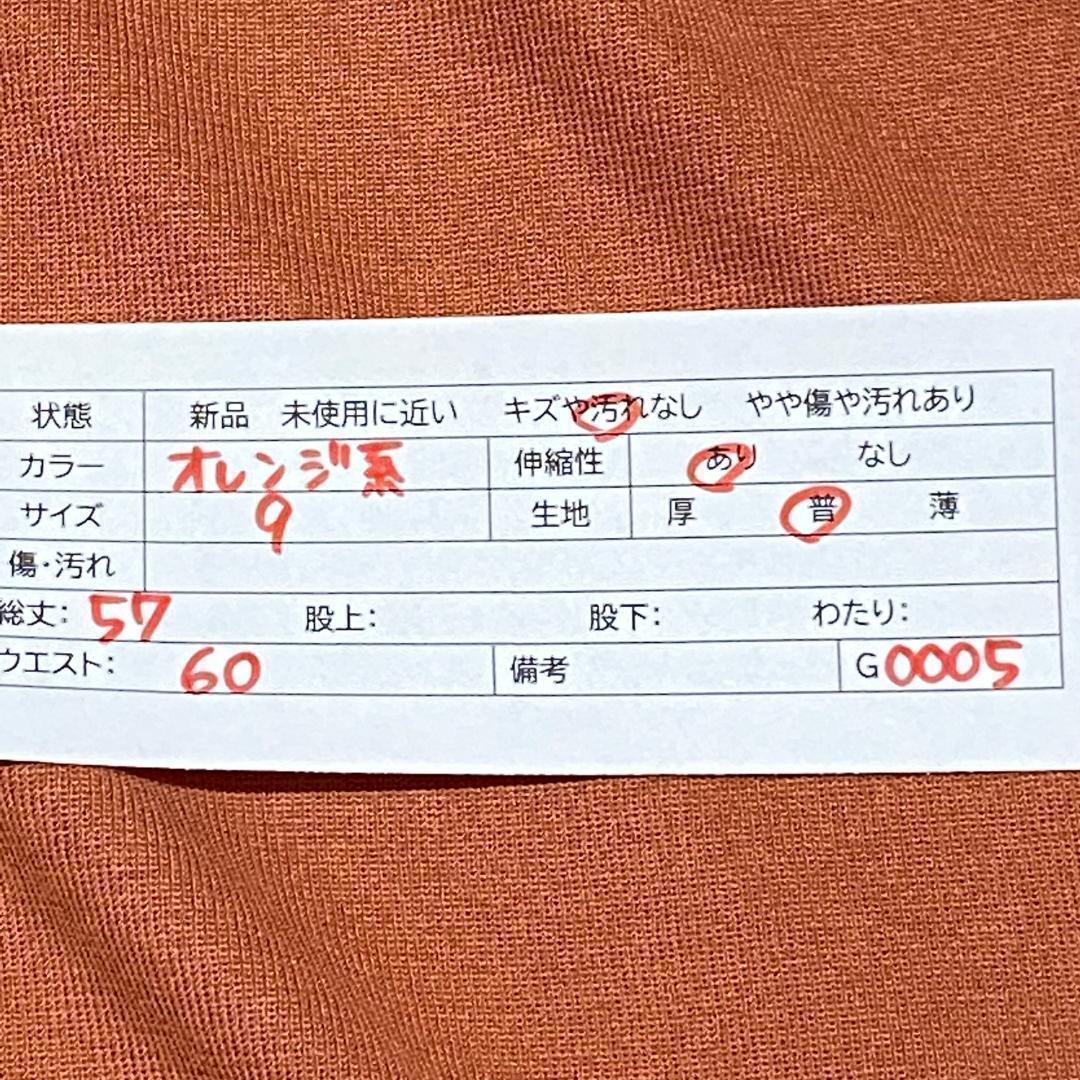 状態 新品 未使用に近い キズや汚れなし やや傷や汚れあり
カラー オレンジ系 伸縮性 あり なし
サイズ 9 生地 厚 普 薄
傷・汚れ
総丈: 57 股上: 股下: わたり:
ウエスト: 60 備考 G0005